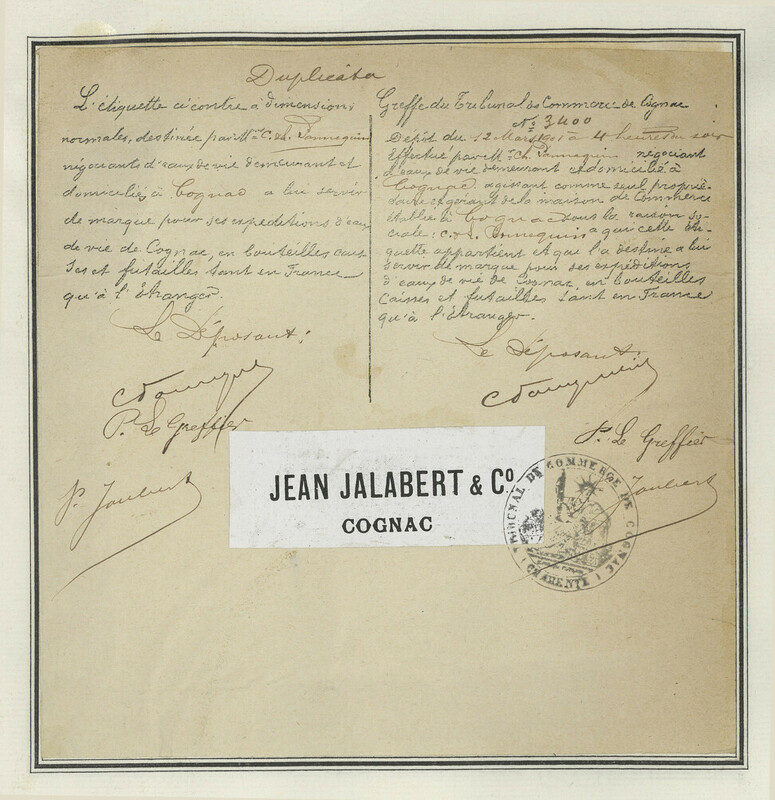 Duplicata
L'étiquette ci contre à dimensions
normales, destinée par Mr C. de Pannequin
négociants d'eaux de vie demeurant et
domiciliés à Cognac a lui servir
de marque pour ses expéditions d'eaux
de vie de Cognac, en bouteilles cais
ses et futailles tant en France
qu'à l'Étranger.
Le Déposant:
P. Le Greffier
P. Joubert
Greffe du Tribunal de Commerce de Cognac
No 3400
Dépôt du 12 Mars à 4 heures du soir
Effectué par Mr Ch. Pannequin négociant
d'eaux de vie demeurant et domicilié à
Cognac, agissant comme seul proprié-
taire et gérant de la maison de Commerce
établie à Cognac sous la raison so-
ciale: Pannequin a que cette éti-
quette appartient et que l'a destine a lui
servir de marque pour ses expéditions
d'eaux de vie de Cognac, en bouteilles
caisses et futailles tant en France
qu'à l'étranger.
Le Déposant.
P. Le Greffier
Joubert
JEAN JALABERT & Co
COGNAC
TRIBUNAL DE COMMERCE DE COGNAC
(CHARENTE)